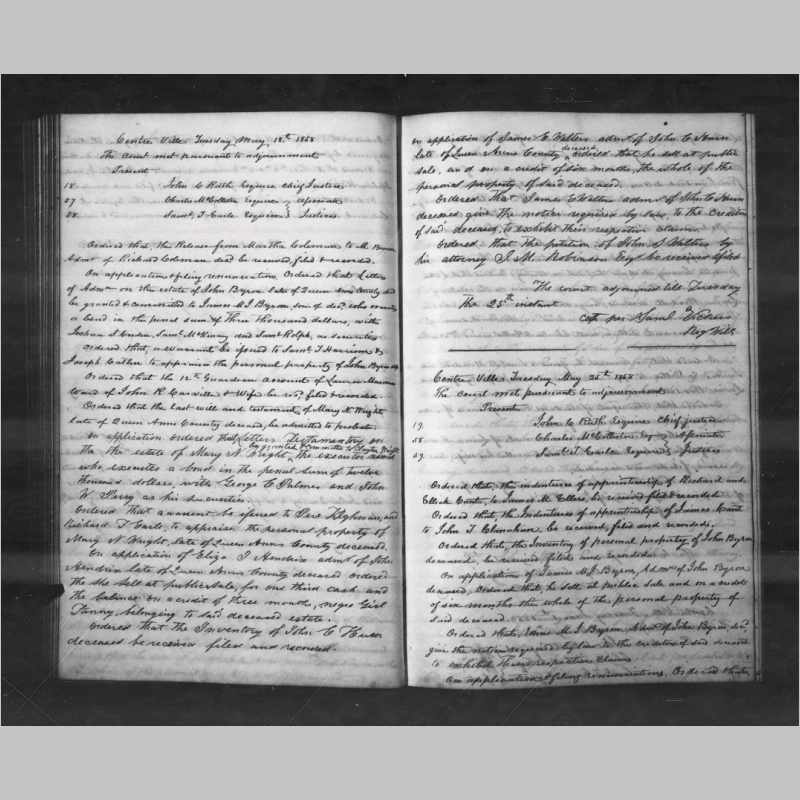 Centre Ville Tuesday May 18th 1858
The court met pursuant to adjournment
Present
18 John C Ruth Esquire Chief Justice
57 Charles McCollister Esquire } Associate
58 Saml. T Earle Esquire } Justices
Ordered that, the Release from Martha Coleman to M.
Admr of Richard Coleman decd be received, filed & recorded.
On application & filing renunciation Ordered that Letters
of Admn on the estate of John Byron late of Queen Anns County decd
be granted & committed to James M. J. Byron, son of decd, who executes
a bond in the penal sum of Three thousand dollars, with
Saml. McKinny and Saml Rolph, as securities
ordered that, a warrant be issued to Saml. T Harrison &
Joseph to appraise the personal property of John Byron
Ordered that the 12th Guardian account of
ward of John R & Wife be recd, filed & recorded.
Ordered that the last will and testament, of Mary N. Wright
late of Queen Anns County deceased, be admitted to probate.
on application ordered that letters Testamentary on
the the estate of Mary N. Wright, be granted & committed to the executor
who executes a bond in the penal sum of twelve
thousand dollars, with George C Palmer and John
W. Perry as his securities.
Ordered that a warrant be issued to Pere and
Richard T Earle, to appraise the personal property of
Mary N Wright, late of Queen Anns County deceased.
On application of Eliza J Hendrix admx of John
Hendrix late of Queen Anns County deceased ordered
the she sell at public sale, for one third cash and
the balance on a credit of three months, negro Girl
belonging to said deceased estate.
Ordered that the Inventory of John C
deceased be received filed and recorded.
on application of James C Walters admr of John C
late of Queen Anns County deceased, ordered that he sell at public
sale, and on a credit of six months, the whole of the
personal property of said deceased.
Ordered That James C Walters admr of John C
deceased give the notice required by law, to the creditors
of said deceased, to exhibit their respective claims.
Ordered that the petition of John S Walters by
his attorney J. M. Robinson Esqr be received & filed
The court adjourned till Tuesday
the 25th instant
per Saml
Reg Wills
Centre Ville Tuesday May 25th 1858
The court met pursuant to adjournment
Present
19. John C Ruth Esquire Chief Justice
58 Charles McCollister Esqr } Associate
59. Saml T Earle Esquire } Justices
Ordered that, the indenture of apprenticeship of Richard and
to James M. Ellers, be received filed & recorded.
Ordered that, the Indentures of apprenticeship of James
to John T. be received, filed and recorded.
Ordered that, the Inventory of personal property of John Byron
deceased, be received filed and recorded.
On application of James M. J. Byron, Admr of John Byron
deceased, Ordered that, he sell at public sale and on a credit
of six months the whole of the personal property of
said deceased.
Ordered that, James M. J. Byron, Admr of John Byron decd
give the notice required by law to the creditors of said deceased
to exhibit their respective claims.
On application & filing renunciations, Ordered that,